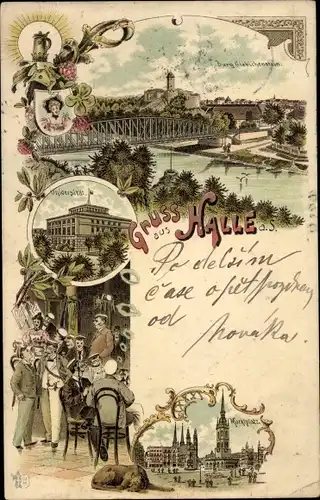 Burg Giebichenstein.
Universität
Gruss
aus
HALLE
a. S.
Po delším
čase opět pozdrav
od
Nováka.
Marktplatz